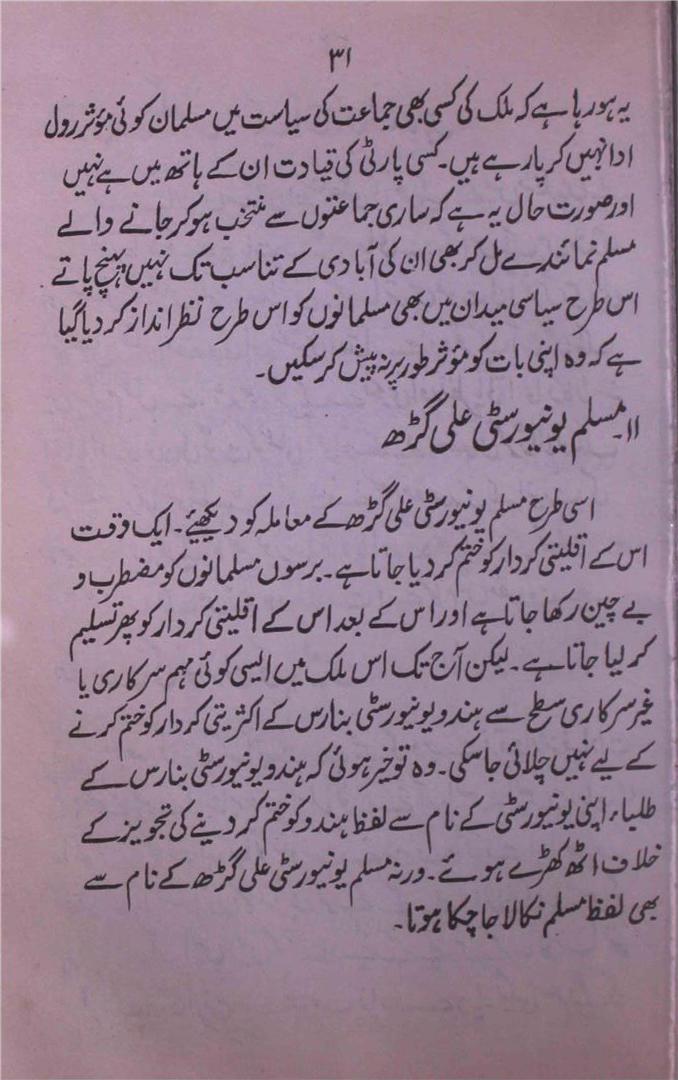 ۳۱
یہ ہو رہا ہے کہ ملک کی کسی بھی جماعت کی سیاست میں مسلمان کوئی مؤثر رول
ادا نہیں کر پا رہے ہیں۔ کسی پارٹی کی قیادت ان کے ہاتھ میں ہے نہیں
اور صورت حال یہ ہے کہ ساری جماعتوں سے منتخب ہو کر جانے والے
مسلم نمائندے مل کر بھی ان کی آبادی کے تناسب تک نہیں پہنچ پاتے
اس طرح سیاسی میدان میں بھی مسلمانوں کو اس طرح نظر انداز کر دیا گیا
ہے کہ وہ اپنی بات کو مؤثر طور پر نہ پیش کر سکیں۔
۱۱۔ مسلم یونیورسٹی علی گڑھ
اسی طرح مسلم یونیورسٹی علی گڑھ کے معاملہ کو دیکھئے۔ ایک وقت
اس کے اقلیتی کردار کو ختم کر دیا جاتا ہے۔ برسوں مسلمانوں کو مضطرب و
بے چین رکھا جاتا ہے اور اس کے بعد اس کے اقلیتی کردار کو پھر تسلیم
کر لیا جاتا ہے۔ لیکن آج تک اس ملک میں ایسی کوئی مہم سرکاری یا
غیر سرکاری سطح سے ہندو یونیورسٹی بنارس کے اکثریتی کردار کو ختم کرنے
کے لیے نہیں چلائی جا سکی۔ وہ تو خیر ہوئی کہ ہندو یونیورسٹی بنارس کے
طلباء اپنی یونیورسٹی کے نام سے لفظ ہندو کو ختم کر دینے کی تجویز کے
خلاف اٹھ کھڑے ہوئے۔ ورنہ مسلم یونیورسٹی علی گڑھ کے نام سے
بھی لفظ مسلم نکالا جا چکا ہوتا۔